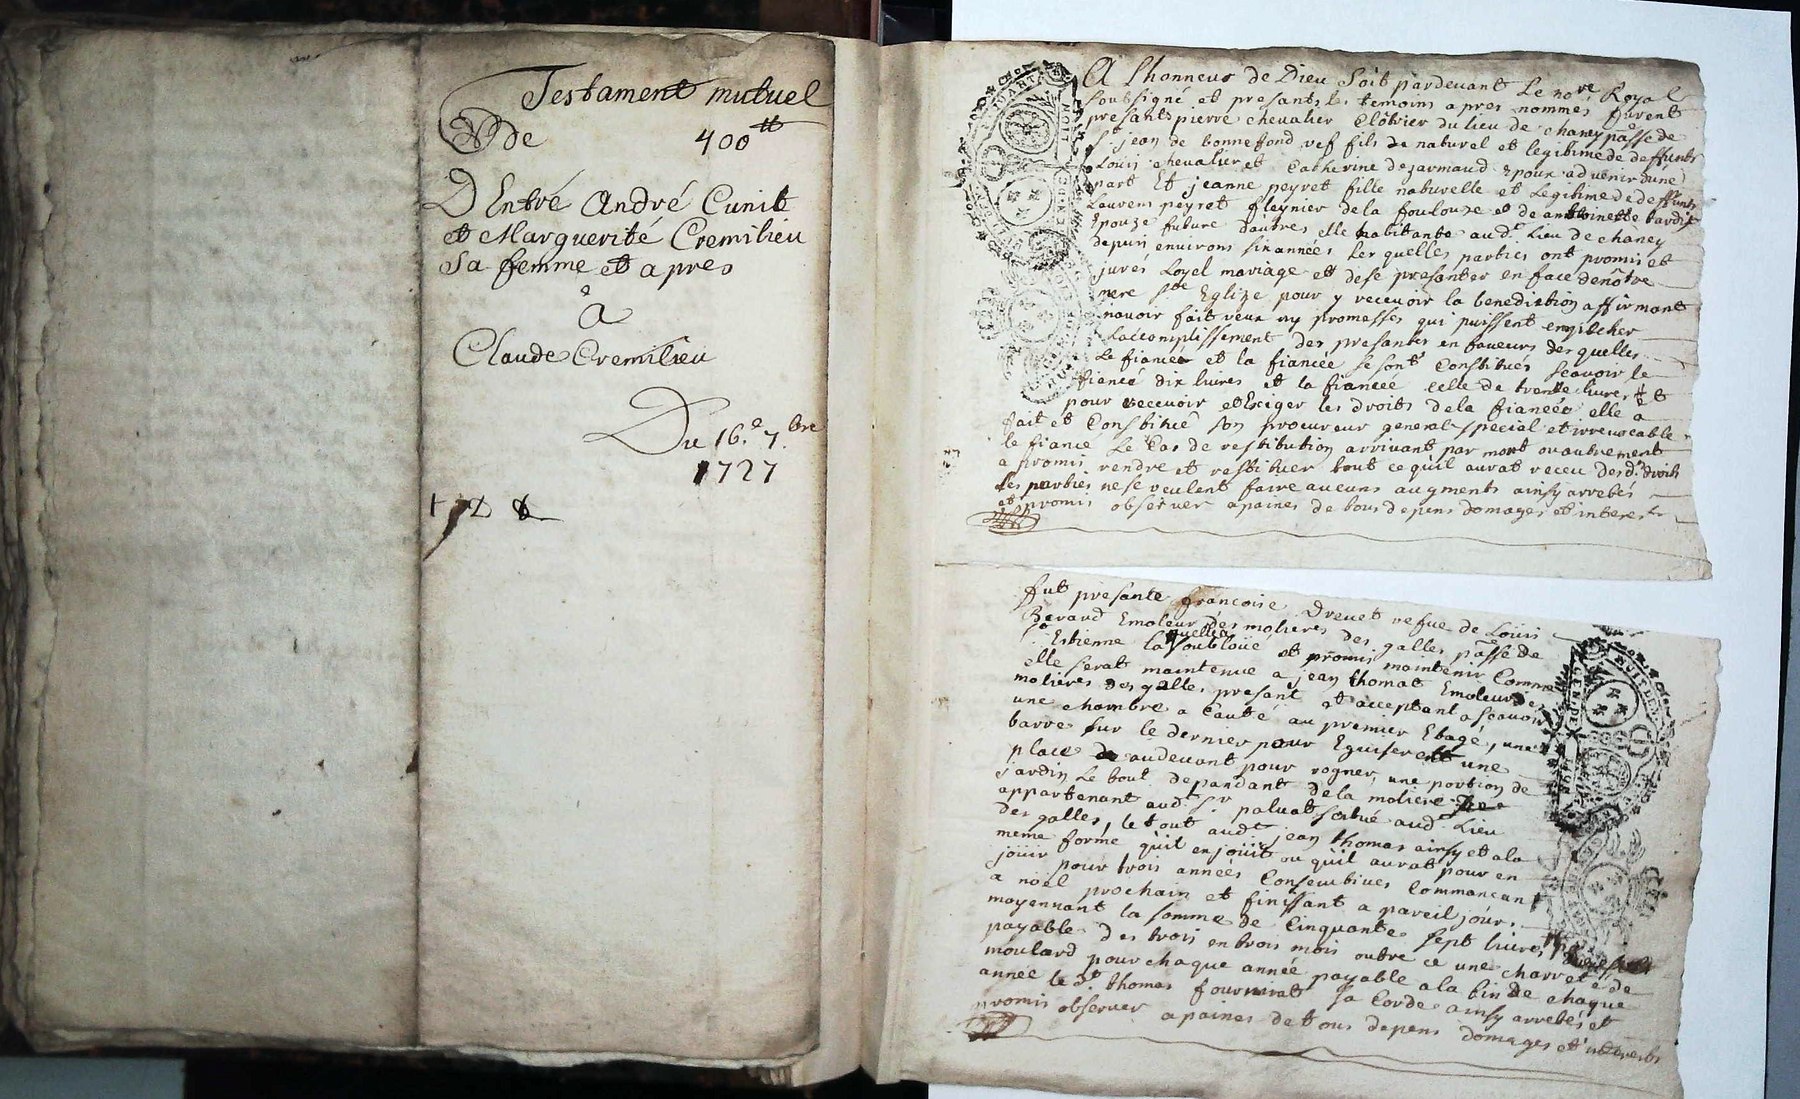 Testament mutuel
de 400 ₶
D Entré André Cunit
et Marguerité Cremilieu
sa femme et apres
a
Claude Cremilieu
Du 16.e 7.bre
1727
A Lhonneur de Dieu Soit pardevant Le nore Royal
soubsigné et presants les temoins apres nommés furent
presants pierre chevalier Cloutrier du lieu de chaney passe de
st jean de bonnefond vef fils de naturel et legitime de deffunts
Louis chevalier et Catherine dejarmaud pour advenir dune
part Et jeanne peyret fille naturelle et Legitime de deffunts
Laurens peyret fleynier de la foulouze et de anthoinette tardif
pouze future dautres elle habitante aud. Lieu de chaney
depuis environs six années Lesquelles parties ont promis et
jurés Loyel mariage et de se presanter en face de nôtre
mere ste Eglize pour y recevoir la benediction affirmant
navoir fait veux ny promesses qui puissent empecher
Laccomplissement des presantes en faveurs des quelles
Le fiancé et la fiancée se sont Constitués scavoir le
fiancé dix livres et la fiancée celle de trente livres et
pour recevoir et Exiger les droits de la fiancée elle a
fait et Constitué son procureur general special et irrevocable
le fiancé Le Cas de restitution arrivant par mort ou autrement
a promis rendre et restituer tout ce quil aurat receu desd. droits
Les parties ne se veulent faire aucuns augments ainsy arretés
et promis observer a paines de tous depens domages et interest
fut presante francoise Drevet vefue de Louis
Beraud Emoleur des molieres des galles passe de
st Estienne laquelle a soubloüé et promis maintenir Comme
elle serat maintenue a jean thomat Emoleur des
molieres des galles presant et acceptant a scavoir
une chambre a Cauté au premier Etagé, une
barre sur le dernier pour Eguiser et une
place de audevant pour rogner, une portion de
jardin Le tout depandant de la moliere
appartenant aud. sr paluat situé aud. Lieu
des galles, le tout audt jean thomas ainsy et a la
meme forme quil en jouit ou quil aurat pour en
joüir pour trois années Consecutives Commancant
a noël prochain et finissant a pareil jour
moyennant la somme de Cinquante sept livres
payable des trois en trois mois outre ce une charreté de
moulard pour chaque année payable a la fin de chaque
année le d. thomas fournirat sa Corde ainsy arretés et
promis observer a paines de tous depens domages et interests